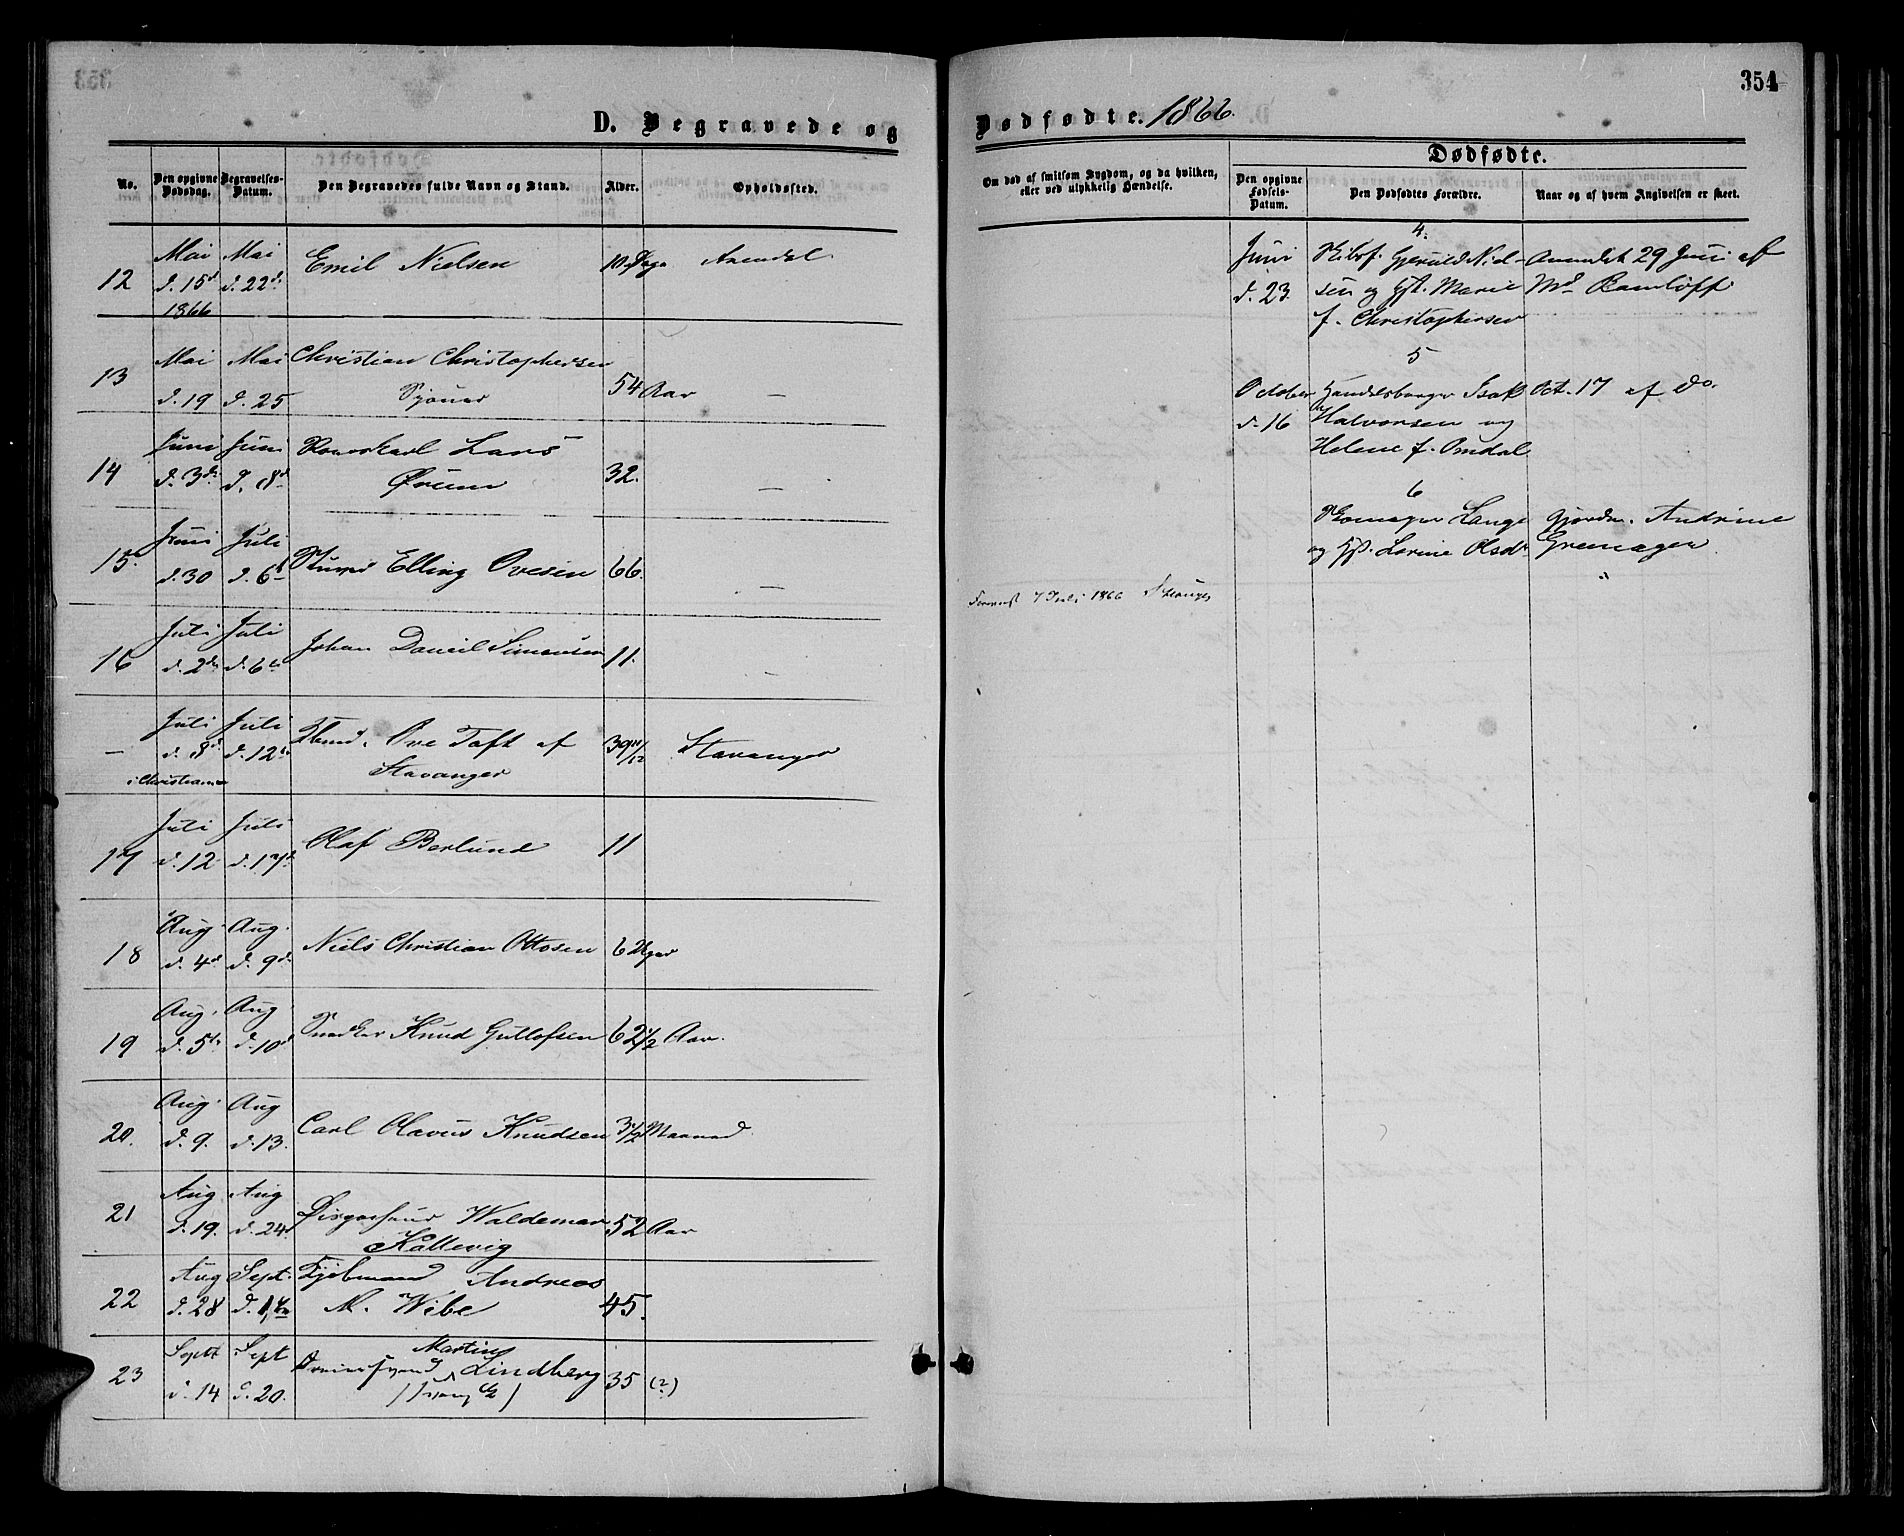 354
D. Begravede og
Dødfødte. 1866.
No.
Den opgivne Dødsdag.
Begravelses-Datum.
Den Begravedes fulde Navn og Stand.
Alder.
Opholdssted.
Om død af smitsom Sygdom, og da hvilken, eller ved ulykkelig Hændelse.
Dødfødte.
Den opgivne Fødsels-Datum.
Den Dødfødtes Forældre.
Naar og af hvem Angivelsen er skeet.
12 Mai d. 15d 1866 Mai d. 22d Emil Nielsen 10 Dage Arendal
13 Mai d. 19 Mai d. 25 Christian Christophersen 54 Aar —
14 Juni d. 3d Juni d. 8d Lars 32. —
15. Juni d. 30 Juli d. 6t Elling Ovesen 66. —
16 Juli d. 2d Juli d. 6t Johan Daniel Simonsen 11. —
— Juli d. 8d i Christiania Juli d. 12t Ove Taft af Stavanger 39 11/12 Stavanger
17 Juli d. 12 Juli d. 17d Olaf Berlund 11
18 Aug. d. 4d Aug. d. 9d Niels Christian Ottosen 6 Uger
19 Aug. d. 5t Aug d. 10d Snedker Knud Gullofsen 62 1/2 Aar.
20. Aug. d. 9. Aug d. 13. Carl Olavus Knudsen 3 1/2 Maaned
21 Aug d. 19. Aug d. 24d Waldemar Kallevig 52 Aar
22 Aug d. 28 Sept. d. 1 Andreas M. Wibe 45.
23 Sept d. 14 Sept d. 20. Martin Lindberg 35 (?)
7 Juli 1866
4.
Juni d. 23. Skibsf. Gjeruld Niel-
sen og Hst. Marie
f. Christophersen
Anmeldt 29 Juni af
Md Ramløff
5
October d. 16 Handelsborger Isak
Halvorsen og
Helene f. Omdal
Oct. 17 af do.
6
Skomager Lange
og Hst. Lovine Olsdr
Gjordm. Andrine
Gremager